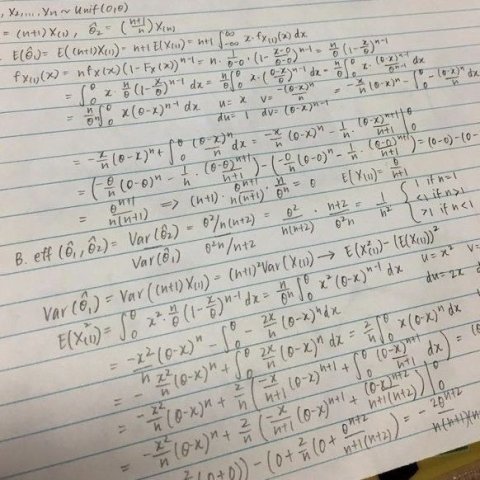 , X₂, ..., Xn ~ Unif(0,θ)
= (n+1)X₍₁₎, θ̂₂ = (n+1/n) X₍n₎
E(θ̂₁) = E((n+1)X₍₁₎) = n+1 E(X₍₁₎) = n+1 ∫_{-∞}^{∞} x·f_{X₍₁₎}(x) dx
f_{X₍₁₎}(x) = n f_X(x) (1-F_X(x))^{n-1} = n · 1/(θ-0) · (1 - (x-0)/(θ-0))^{n-1} = n/θ (1 - x/θ)^{n-1}
= ∫₀^θ x · n/θ (1 - x/θ)^{n-1} dx = n/θ ∫₀^θ x · ((θ-x)/θ)^{n-1} dx = n/θ ∫₀^θ x · (θ-x)^{n-1}
= n/θⁿ ∫₀^θ x(θ-x)^{n-1} dx u = x v = -(θ-x)ⁿ/n = -x/n (θ-x)ⁿ - ∫₀^θ -(θ-x)ⁿ/n dx
du = 1 dv = (θ-x)^{n-1}
= -x/n (θ-x)ⁿ + ∫₀^θ (θ-x)ⁿ/n dx = -x/n (θ-x)ⁿ - 1/n · (θ-x)^{n+1}/(n+1) |₀^θ
= (-θ/n (θ-θ)ⁿ - 1/n · (θ-θ)^{n+1}/(n+1)) - (-0/n (θ-0)ⁿ - 1/n · (θ-0)^{n+1}/(n+1)) = (0-0) - (0-
= θ^{n+1}/n(n+1) ⟹ (n+1) · θ^{n+1}/n(n+1) · n/θⁿ = θ E(X₍₁₎) = θ/(n+1)
B. eff(θ̂₁, θ̂₂) = Var(θ̂₂)/Var(θ̂₁) = (θ²/n(n+2))/(θ²n/n+2) = θ²/n(n+2) · (n+2)/θ²n = 1/n² { 1 if n=1
<1 if n>1
>1 if n<1
Var(θ̂₁) = Var((n+1)X₍₁₎) = (n+1)² Var(X₍₁₎) → E(X²₍₁₎) - (E(X₍₁₎))²
E(X²₍₁₎) = ∫₀^θ x² · n/θ (1 - x/θ)^{n-1} dx = n/θⁿ ∫₀^θ x² (θ-x)^{n-1} dx u = x² v =
du = 2x d
= -x²/n (θ-x)ⁿ - ∫₀^θ -2x/n (θ-x)ⁿ dx
= -x²/n (θ-x)ⁿ + ∫₀^θ 2x/n (θ-x)ⁿ dx = 2/n ∫₀^θ x(θ-x)ⁿ dx
= -x²/n (θ-x)ⁿ + 2/n (-x/(n+1) (θ-x)^{n+1} + ∫₀^θ (θ-x)^{n+1}/(n+1) dx) = (0
= -x²/n (θ-x)ⁿ + 2/n (-x/(n+1) (θ-x)^{n+1} + (θ-x)^{n+2}/(n+1)(n+2)) |₀^θ
2/n (0+0)) - (0 + 2/n (0 + θ^{n+2}/(n+1)(n+2)) = -2θ^{n+2}